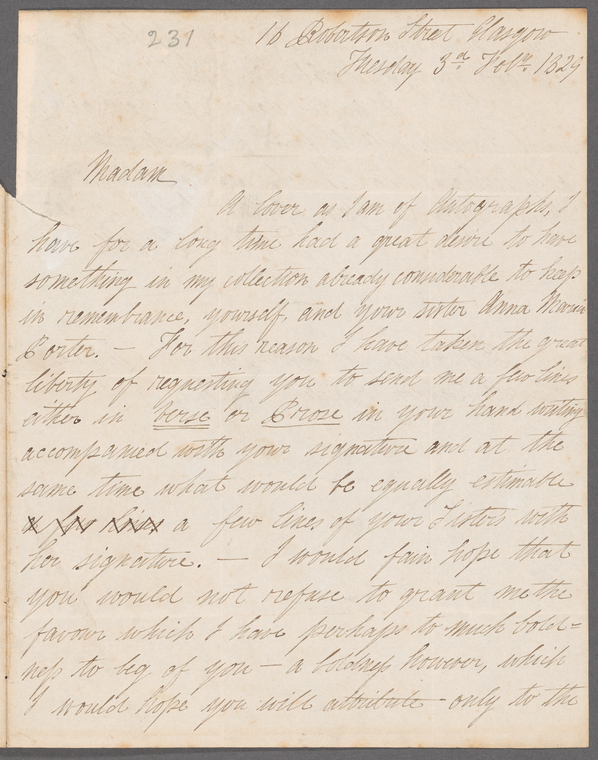 231
16 Robertson Street Glasgow
Tuesday 3d. Feby. 1829
Madam
A lover as I am of Autographs, I
have for a long time had a great desire to have
something in my collection already considerable to keep
in remembrance, yourself, and your sister Anna Maria
Porter. — For this reason I have taken the great
liberty of requesting you to send me a few lines
either in verse or Prose in your hand writing
accompanied with your signature and at the
same time what would be equally estimable
a few lines of your Sisters with
her signature. — I would fain hope that
you would not refuse to grant me the
favour which I have perhaps to much bold=
ness to beg of you — a boldness however, which
I would hope you will attribute only to the